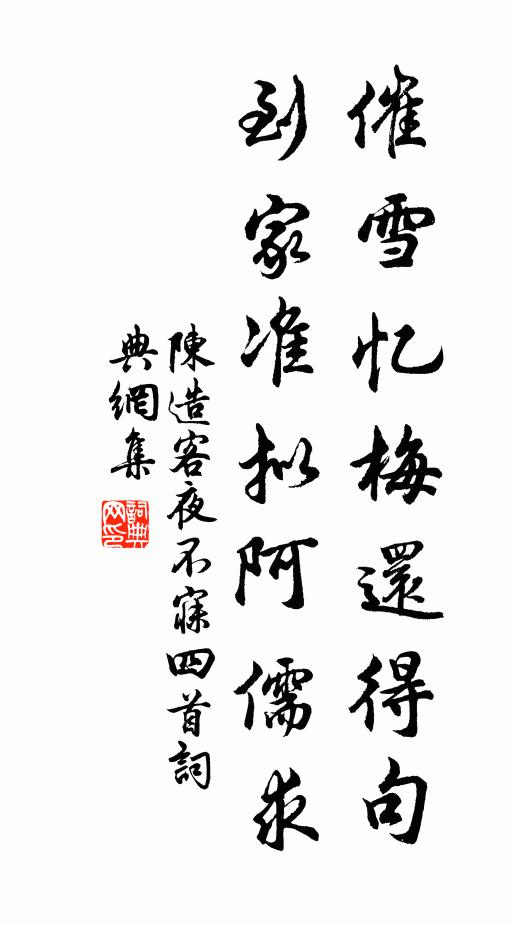 催雪忆梅還得句
到家准拟阿儒求
陳造客夜不寐四首詞
典網集
詞典
网印